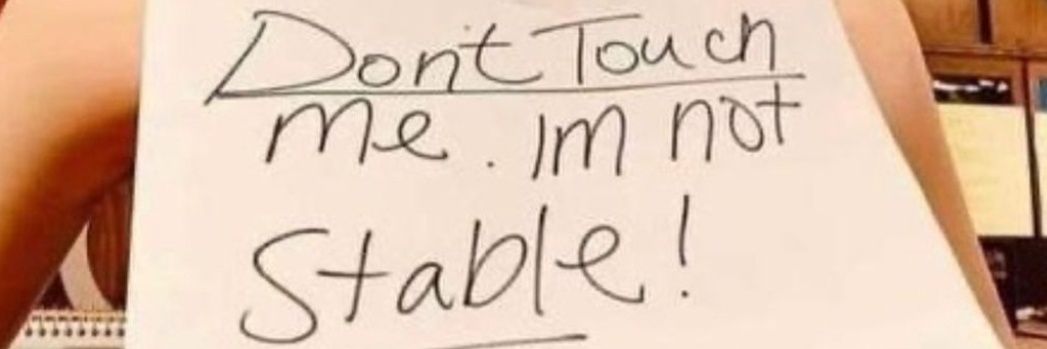 Don't Touch
me. Im not
Stable!